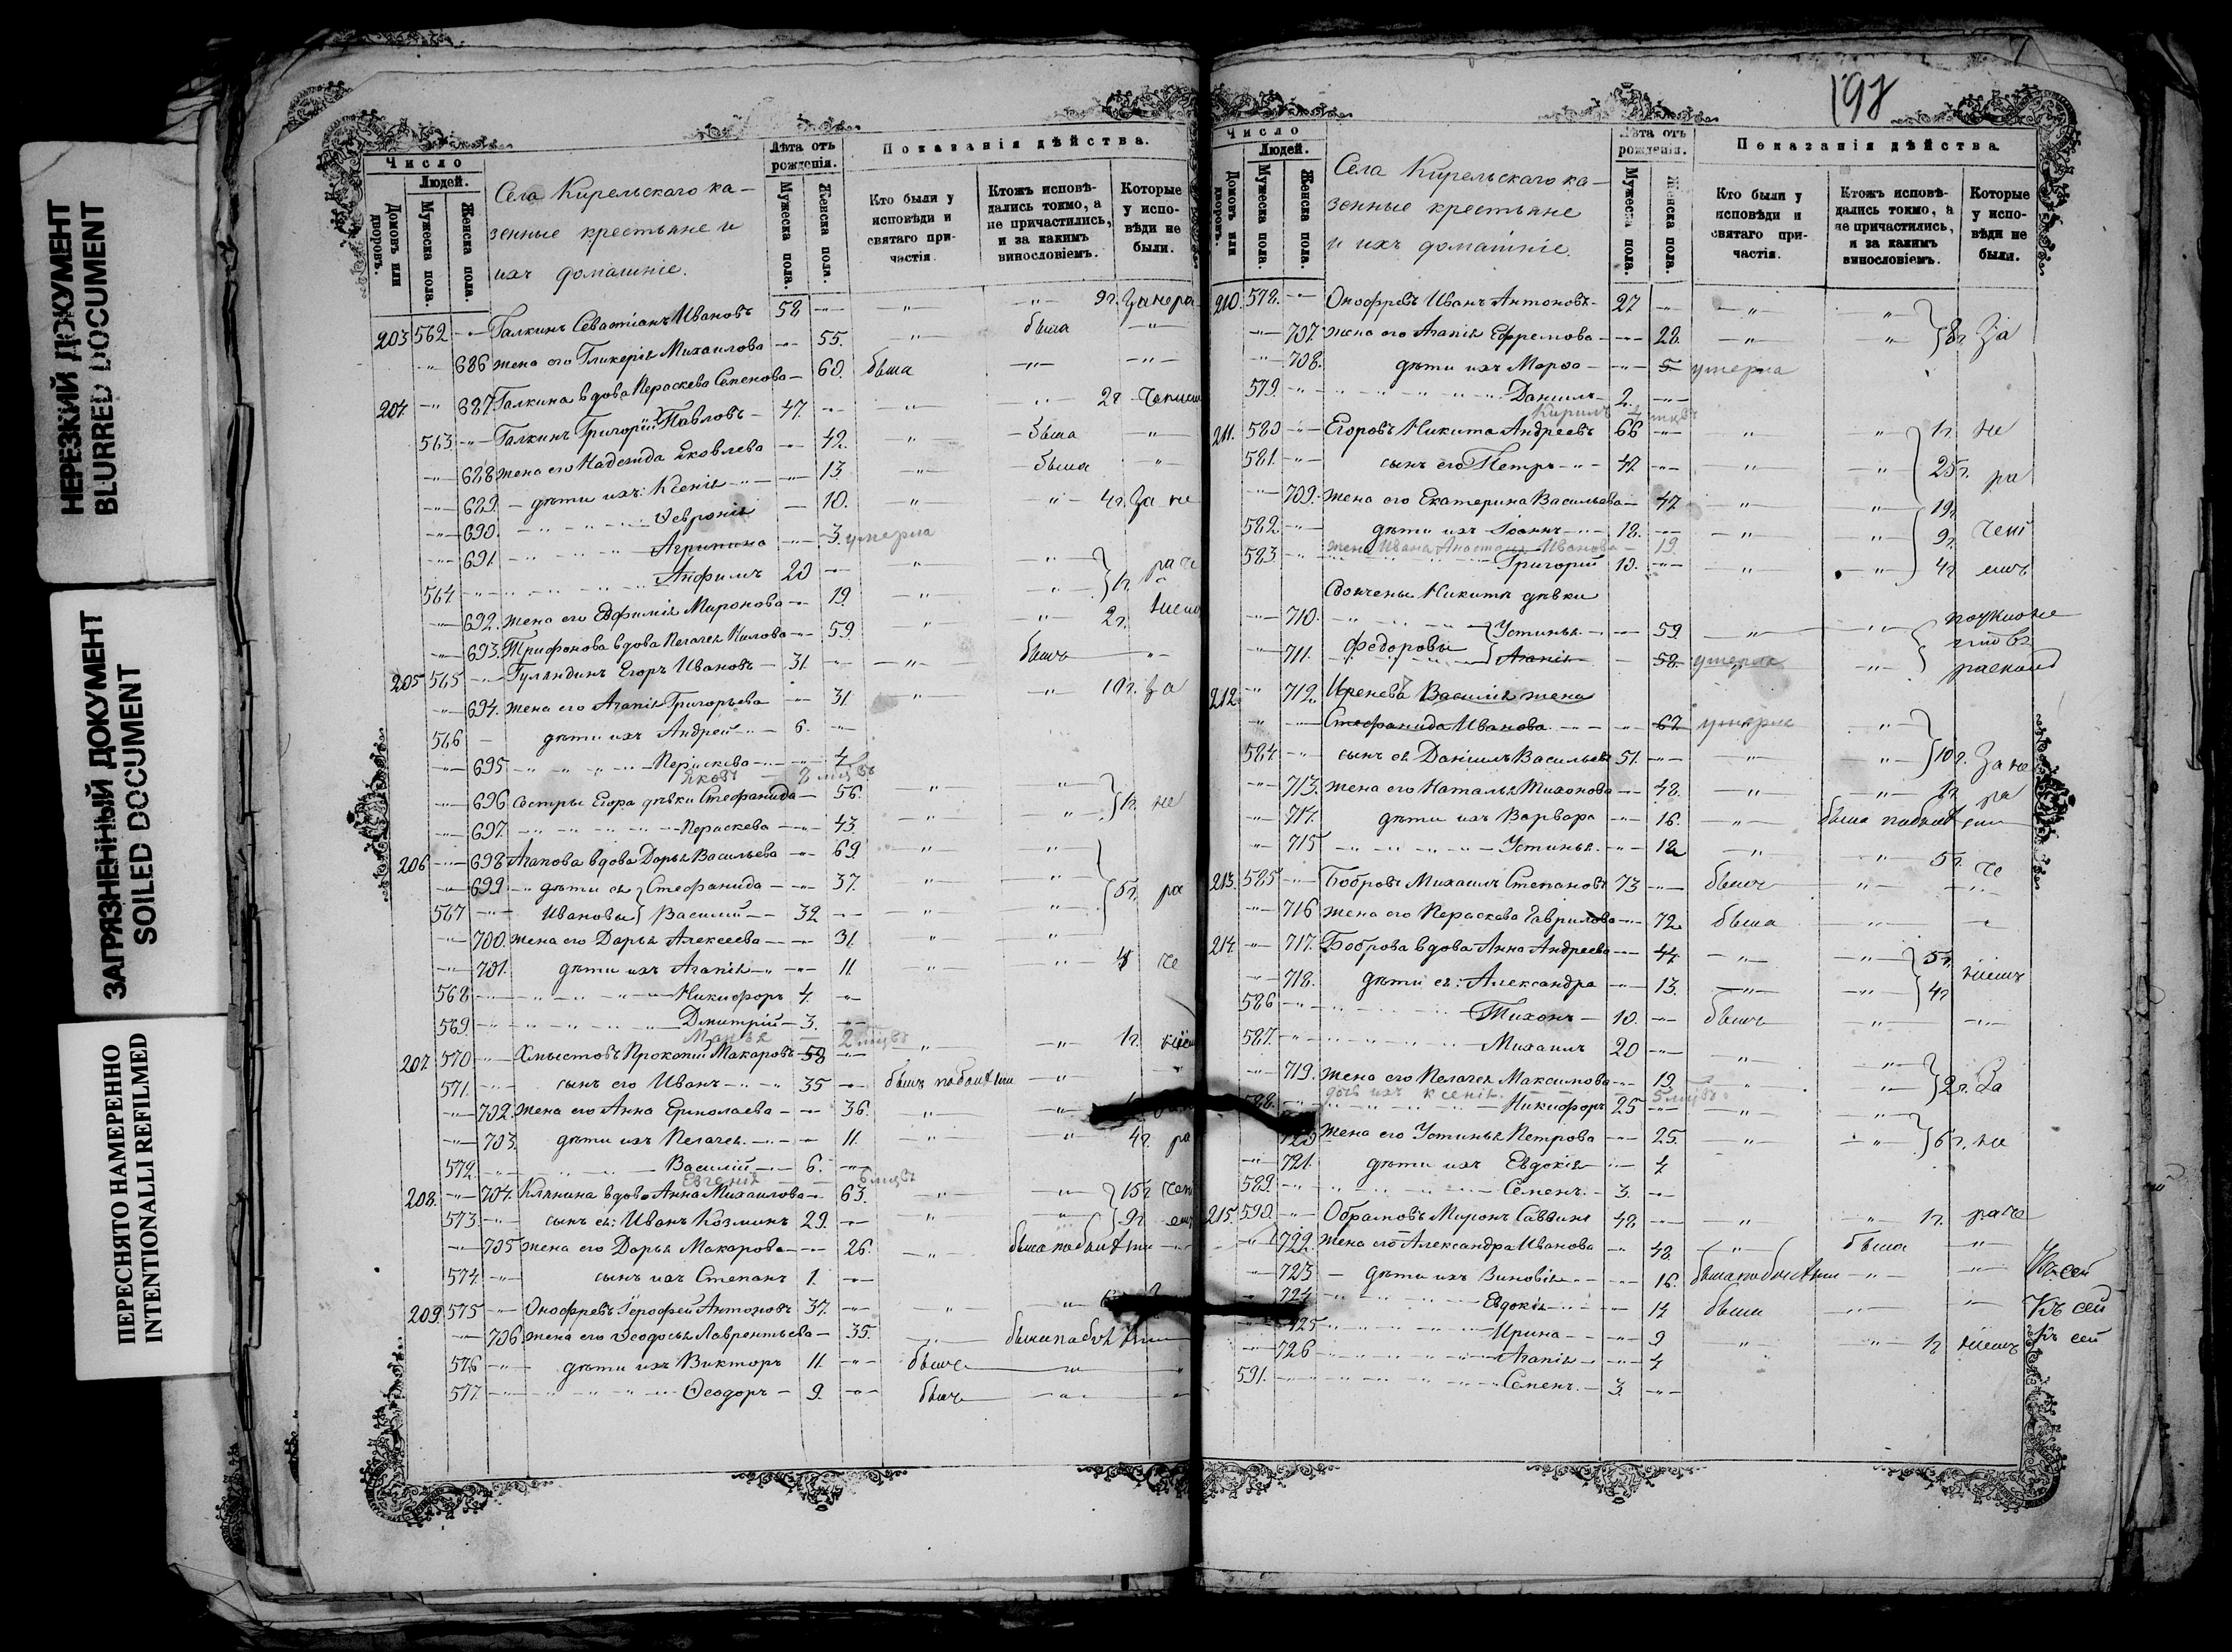 НЕРЕЗКИЙ ДОКУМЕНТ
BLURRED DOCUMENT
ЗАГРЯЗНЕННЫЙ ДОКУМЕНТ
SOILED DOCUMENT
ПЕРЕСНЯТО НАМЕРЕННО
INTENTIONALLI REFILMED
Число
Людей.
Домовъ или дворовъ.
Мужеска пола.
Женска пола.
Села Кирельскаго ка-
зенные крестьяне и
ихъ домашніе.
Лѣта отъ рожденія.
Мужеска пола.
Женска пола.
Показанія дѣйства.
Кто были у исповѣди и святаго причастія.
Ктожъ исповѣдались токмо, а не причастились, и за какимъ винословіемъ.
Которые у исповѣди не были.
203 562 Галкинъ Севастіанъ Ивановъ 58 9г. За нера
686 жена его Гликерія Михаилова 55. была
204 687 Галкина вдова Параскева Семенова 60. была
563 Галкинъ Григорій Павловъ 47. 2г
688 жена его Надежда Яковлева 42. была
689. дѣти ихъ: Ксенія 13. была
690. Ѳевронія 10. 4г. За не
691. Агрипина 3. умерла
564 Анфимъ 20 1г. раче
692. жена его Евфимія Миронова 19.
693. Трифонова вдова Пелагея Нилова 59. 2г.
205 565 Гуляндинъ Егоръ Ивановъ 31. былъ
694. жена его Агапія Григорьева 31. 10г. За
566 дѣти ихъ Андрей 6.
695 Пераскева 4.
Яковъ 8 мцвъ
696 сестры Егора дѣвки Стефанида 56. 1г. не
697. Пераскева 43.
206 698 Агапова вдова Дарья Васильева 69.
699 дѣти ея Стефанида 37. 5г. ра
567 Ивановы Василій 32
700. жена его Дарья Алексеева 31.
701. дѣти ихъ Агапія 11. че
568 Никифоръ 4.
569 Дмитрій 3.
Марья 2 мцвъ
207. 570 Хмыстовъ Прокопій Макаровъ 58 1г.
571. сынъ его Иванъ 35
702. жена его Анна Ермолаева 36.
703 дѣти ихъ Пелагея 11. 4г. ра
572. Василій 6.
Евгенія 6 мцвъ
208. 704. Клянина вдова Анна Михаилова 63. 15г.
573 сынъ ея: Иванъ Козминъ 29. 9г.
705 жена его Дарья Макарова 26.
574 сынъ ихъ Степанъ 1.
209. 575 Онофревъ Герофей Антоновъ 37.
706 жена его Ѳеодосья Лаврентьева 35.
576 дѣти ихъ Викторъ 11. былъ
577. Ѳеодоръ 9. былъ
198
Число
Людей.
Домовъ или дворовъ.
Мужеска пола.
Женска пола.
Села Кирельскаго ка-
зенные крестьяне
и ихъ домашніе.
Лѣта отъ рожденія.
Мужеска пола.
Женска пола.
Показанія дѣйства.
Кто были у исповѣди и святаго причастія.
Ктожъ исповѣдались токмо, а не причастились, и за какимъ винословіемъ.
Которые у исповѣди не были.
210. 578. Онофревъ Иванъ Антоновъ 27
707. жена его Агапія Ефремова 28. 8г. За
708. дѣти ихъ Марѳа 5. умерла
579. Даніилъ 2.
Кирилъ 4 мцвъ
211. 580 Егоровъ Никита Андреевъ 66 1г. не
581. сынъ его Петръ 47. 25г. ра
709. жена его Екатерина Васильева 47 19г.
582. дѣти ихъ Іоаннъ 18. 9г.
жена Ивана Анастасія Иванова 19.
583 Григорій 10. 4г
Своячены Никиты дѣвки
710. Устинья 59
711. Федоровы Агапія 58. умерла
212. 712. Иренева Василія жена
Стефанида Иванова 67. умерла
584 сынъ ея Даніилъ Васильевъ 51. 10г. За не
713. жена его Наталья Тихонова 48. 1г. ра
714. дѣти ихъ Варвара 16. была
715 Устинья 12 5г. че
213. 585 Бобровъ Михаилъ Степановъ 73 былъ
716 жена его Пераскева Гаврилова 72. была
214. 717. Боброва вдова Анна Андреева 44. 5г.
718. дѣти ея: Александра 13. 4г
586 Тихонъ 10. былъ
587. Михаилъ 20
719. жена его Пелагея Максимова 19 2г. За
дочь ихъ Ксенія 5 мцвъ
588. Никифоръ 25
720 жена его Устинья Петрова 25. 6г. не
721. дѣти ихъ Евдокія 4
589. Семенъ 3.
215. 590. Обрамовъ Миронъ Саввинъ 48 1г. раче
722. жена его Александра Иванова 48 была
723 дѣти ихъ Зиновія 16.
724 Евдокія 14 была Къ сей
725 Ирина 9 1г. Къ сей
726 Агапія 4
591. Семенъ 3